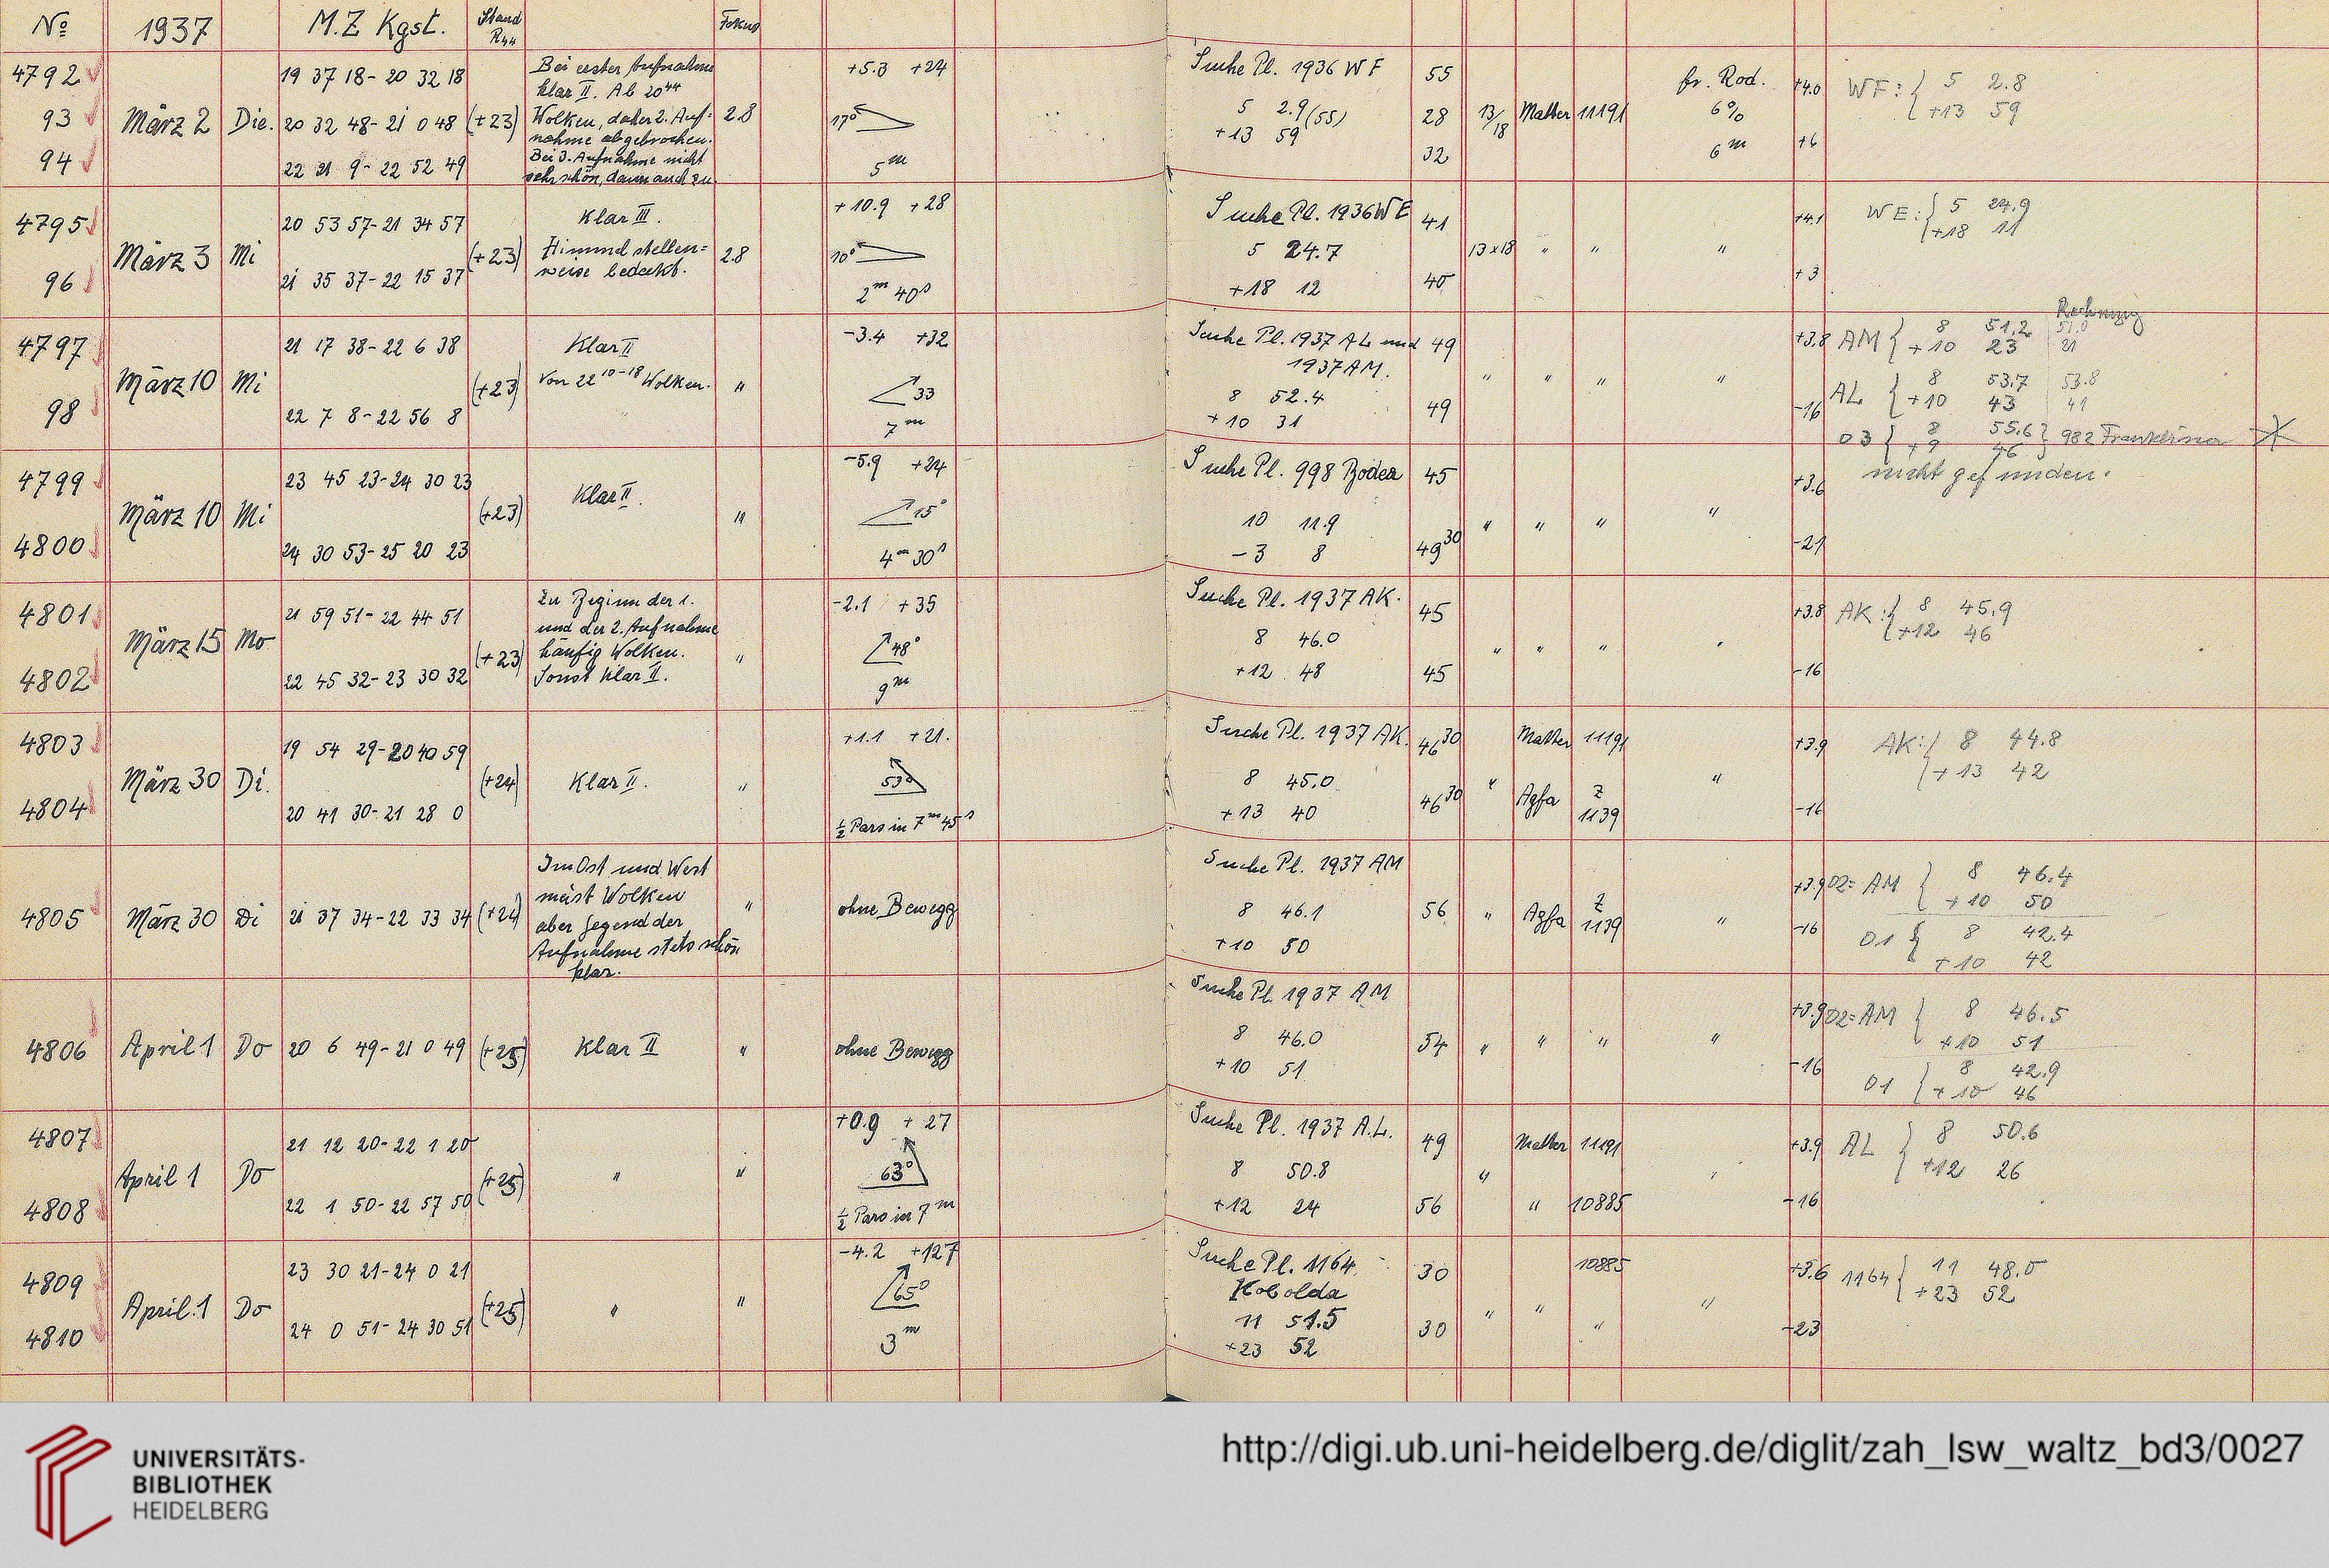 No 1937 M.Z Kgst. Stand R44 Fokus
4792 19 37 18 - 20 32 18 Bei erster Aufnahme +5.3 +24 Suche Pl. 1936 WF 55 fr. Rod. +4.0 WF: { 5 2.8
klar II. Ab 20⁴⁴
93 März 2 Die. 20 32 48 - 21 0 48 (+23) Wolken, daher 2. Auf= 2.8 17° 5 2.9 (55) 28 13/18 Matter 11191 6% +13 59
nahme abgebrochen. +13 59
94 22 21 9 - 22 52 49 Bei 3. Aufnahme nicht 5ᵐ 32 6ᵐ +6
sehr schön, dann auch zu.
4795 20 53 57 - 21 34 57 Klar III. +10.9 +28 Suche Pl. 1936 WE 41 +4.1 WE: { 5 24.9
+18 11
März 3 Mi (+23) Himmel stellen= 2.8 10° 5 24.7 13x18 " " "
weise bedeckt.
96 21 35 37 - 22 15 37 2ᵐ 40ˢ +18 12 40 +3
4797 21 17 38 - 22 6 38 Klar II -3.4 +32 Suche Pl. 1937 AL und 49 +3.8 AM { 8 51.2 Rechnung 51.0
1937 AM. +10 23 21
März 10 Mi (+23) Von 22¹⁰⁻¹⁸ Wolken. " 33 8 52.4 " " " " AL { 8 53.7 53.8
98 22 7 8 - 22 56 8 7ᵐ +10 31 49 -16 +10 43 41
03 { 8 55.6 } 982 Franklina
+9 46
nicht gefunden.
4799 23 45 23 - 24 30 23 Klar II. -5.9 +24 Suche Pl. 998 Bodea 45 +3.6
März 10 Mi (+23) " 15° 10 11.9 " " " "
4800 24 30 53 - 25 20 23 4ᵐ 30ˢ -3 8 49³⁰ -21
4801 21 59 51 - 22 44 51 Zu Beginn der 1. -2.1 +35 Suche Pl. 1937 AK. 45 +3.8 AK: { 8 45.9
und der 2. Aufnahme +12 46
März 15 Mo (+23) häufig Wolken. " 48° 8 46.0 " " " "
4802 22 45 32 - 23 30 32 Sonst klar II. 9ᵐ +12 48 45 -16
4803 19 54 29 - 20 40 59 +1.1 +21. Suche Pl. 1937 AK. 46³⁰ Matter 11191 +3.9 AK: { 8 44.8
+13 42
März 30 Di. (+24) Klar II. " 53° 8 45.0 " "
4804 20 41 30 - 21 28 0 ½ Pars in 7ᵐ 45ˢ +13 40 46³⁰ Agfa Z 1139 -16
Im Ost und West Suche Pl. 1937 AM +3.9 02= AM { 8 46.4
meist Wolken +10 50
4805 März 30 Di 21 37 34 - 22 33 34 (+24) aber Gegend der " ohne Bewegg 8 46.1 56 " Agfa Z 1139 " -16 01 { 8 42.4
Aufnahme stets schön +10 50 +10 42
klar.
Suche Pl. 1937 AM +3.9 02= AM { 8 46.5
+10 51
4806 April 1 Do 20 6 49 - 21 0 49 (+25) Klar II " ohne Bewegg 8 46.0 54 " " " " -16 01 { 8 42.9
+10 51 +10 46
4807 21 12 20 - 22 1 20 +0.9 +27 Suche Pl. 1937 A.L. 49 Matter 11191 +3.9 AL { 8 50.6
+12 26
April 1 Do (+25) " " 63° 8 50.8 " "
4808 22 1 50 - 22 57 50 ½ Pars in 7ᵐ +12 24 56 " 10885 -16
4809 23 30 21 - 24 0 21 -4.2 +127 Suche Pl. 1164 30 10885 +3.6 1164 { 11 48.0
Kobolda +23 52
April. 1 Do (+25) " " 65° 11 51.5 " " "
4810 24 0 51 - 24 30 51 3ᵐ +23 52 30 " -23
UNIVERSITÄTS-
BIBLIOTHEK
HEIDELBERG
http://digi.ub.uni-heidelberg.de/diglit/zah_lsw_waltz_bd3/0027